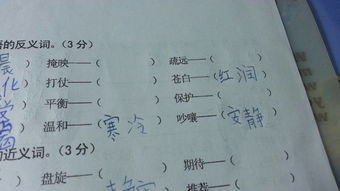 的反义词。(3分)
) 掩映——( ) 疏远——( )
化) 打仗——( ) 苍白——(红润)
) 平衡——( ) 保护——( )
) 温和——(寒冷) 吵嚷——(安静)
近义词。(3分)
) 盘旋——( ) 期待——( )
推荐——(